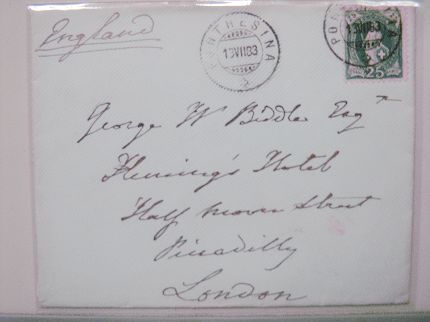 England
PONTRESINA
13 VII 83
PONTRESINA
13 VII 83
25
George W Biddle Esq
Fleming's Hotel
Half moon Street
Piccadilly
London